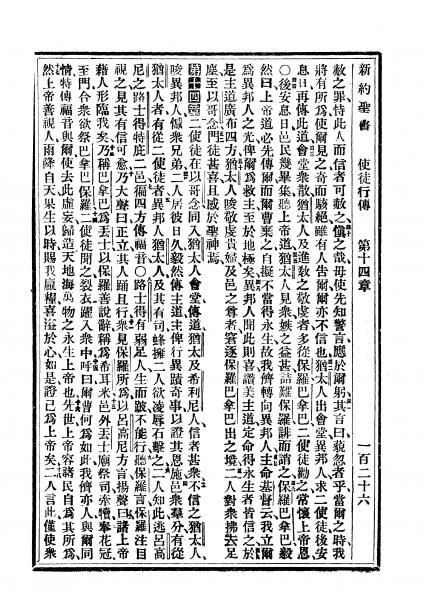 新約聖書 使徒行傳 第十四章 一百二十六
赦之罪恃此人而信者可赦之儆之哉毋使先知警言應於爾躬其言曰藐忽者乎當爾之時我
將有所爲使爾見之奇而駭絕雖有人告爾爾亦不信也猶太人出會堂異邦人求二使徒後安
息日再傳此道會堂衆散猶太人及進敎之敬虔者多從保羅巴拿巴二使徒勸之常懷上帝恩
○後安息日邑民幾畢集聽上帝道猶太人見衆嫉之益甚詰難保羅誹而謗之保羅巴拿巴毅
然曰上帝道必先傳爾而爾曹棄之自擬不當得永生故我儕轉向異邦人主命基督云我立爾
爲異邦人之光俾爾爲救主至於地極矣異邦人聞此則喜讚美主道定命得永生者皆信之於
是主道廣布四方猶太人唆敬虔貴婦及邑之尊者窘逐保羅巴拿巴出之境二人對衆拂去足
塵至以哥念門徒甚喜且感於聖神焉
第十四章 二使徒在以哥念同入猶太人會堂傳道猶太及希利尼人信者甚衆不信之猶太人
唆異邦人憾衆兄弟二人居彼日久毅然傳主道主俾行異蹟奇事以證其恩施邑衆羣分有從
猶太人者有從二使徒者異邦人猶太人及其有司蜂擁二人欲凌辱石擊之二人知此逃呂高
尼之路士得特庇二邑徧四方傳福音○路士得有弱足人生而跛不能行聽保羅言保羅注目
視之見其有信可愈乃大聲曰正立其人踊且行衆見保羅所爲以呂高尼方言揚聲曰諸上帝
藉人形臨我衆乃稱巴拿巴爲丟士以保羅善說辭稱爲希耳米邑外丟士廟祭司牽犢奉花冠
至門合衆欲祭巴拿巴保羅二使徒聞之裂衣躍入衆中呼曰爾曹何爲如此我儕亦人與爾同
情特傳福音與爾使去此虛妄歸造天地海萬物之永生上帝也先世上帝容諸民自爲其所爲
然上帝善視人雨降自天果生以時賜我贏糧喜溢於心如是證己爲上帝矣二人言此僅使衆